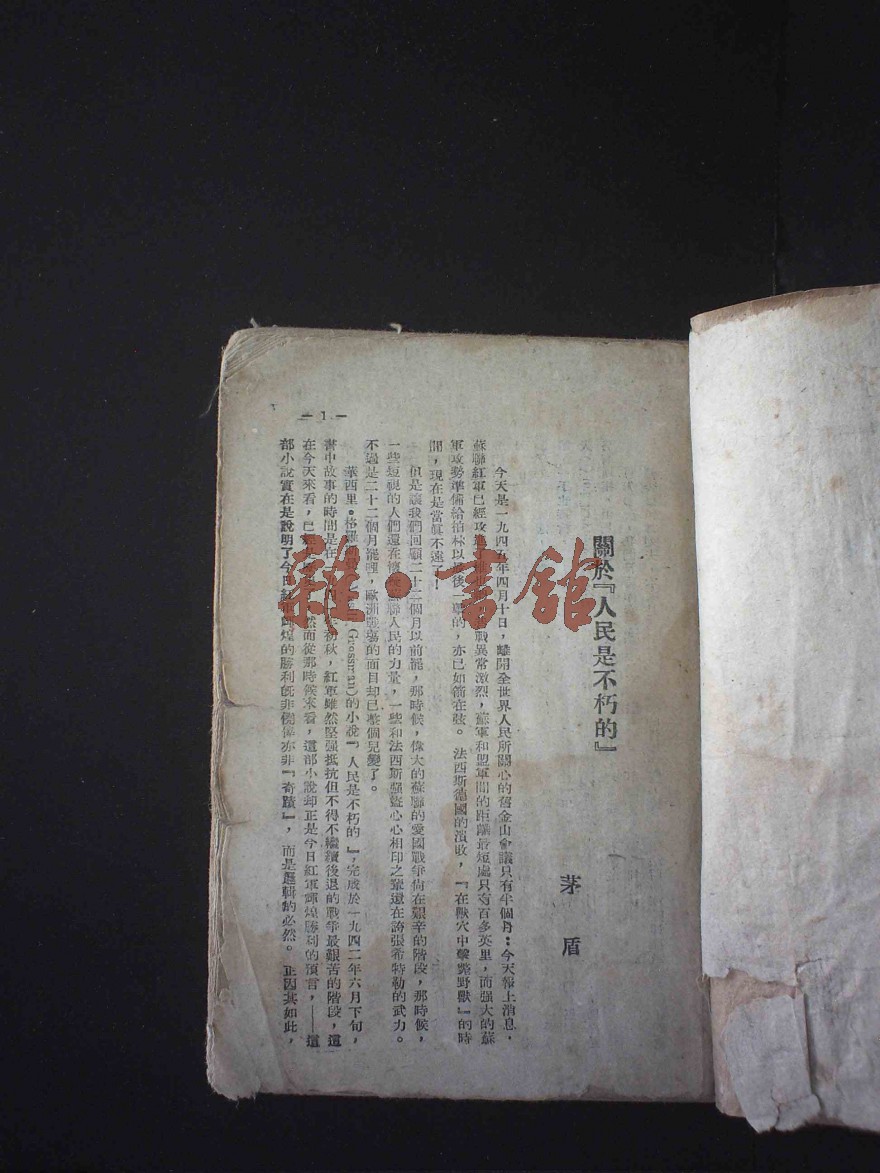 關於『人民是不朽的』
茅盾
今天是一九四五年四月十日，離開全世界人民所關心的舊金山會議只有半個月：今天報上消息，
蘇聯紅軍已經攻進了維也納，戰異常激烈，蘇軍和盟軍間的距離最短處只有百多英里，而强大的蘇
軍攻勢準備給柏林以最後一擊的，亦已如箭在弦。法西斯德國的潰敗，『在獸穴中擊斃野獸』的時
間，現在是當眞不遠了！
但是讓我們回顧二十二個月以前罷，那時候，偉大的蘇聯的愛國戰爭尙在艱辛的階段，那時候，
一些短視的人們還在懷疑蘇聯人民的力量，一些和法西斯强盜心心相印之輩還在誇張希特勒的武力。
不過是二十二個月罷哩，歐洲戰場的面目却已整個兒變了。
華西里·格羅 Grossman)的小說『人民是不朽的』，完成於一九四二年六月下旬，
書中故事的時間是在一 初秋，紅軍雖然堅强抵抗但不得不繼續後退的戰爭最艱苦的階段，這
在今天來看，已 然而從那時候來看，這部小說却正是今日紅軍輝煌勝利的預言，——這
部小說實在是說明了今日紅軍輝煌的勝利旣非僥倖亦非『奇蹟』，而是邏輯的必然。正因其如此，
— 1 —
雜·書館